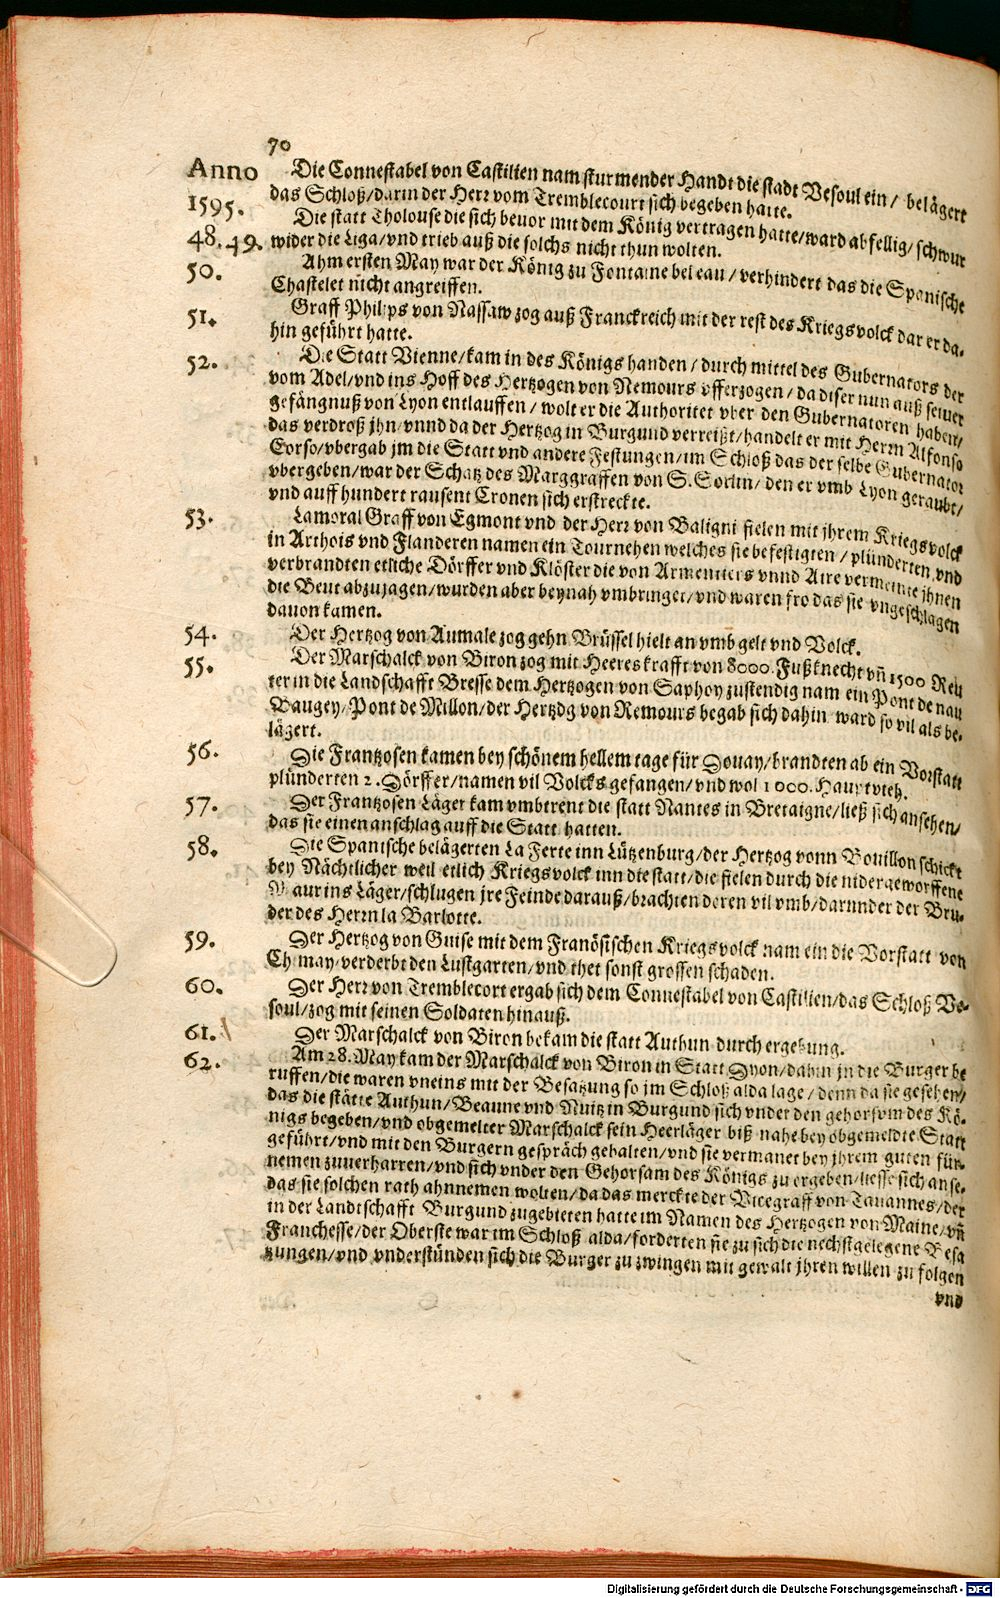 70
Anno Die Connestabel von Castilien nam sturmender Handt die stadt Vesoul ein/ belägert
1595. das Schloß/darin der Herr vom Tremblecourt sich begeben hatte.
Die statt Tholouse die sich beuor mit dem König vertragen hatte/ward abfellig/schwur
48.49. wider die Liga/vnd trieb auß die solchs nicht thun wolten.
50. Ahm ersten May war der König zu Fontaine bel eau/verhindert das die Spanische
Chastelet nicht angreiffen.
51. Graff Philips von Nassaw zog auß Franckreich mit der rest des Kriegsvolck dar er da-
hin geführt hatte.
52. Die Statt Vienne/kam in des Königs handen/durch mittel des Gubernators der
vom Adel/vnd ins Hoff des Hertzogen von Nemours vfferzogen/da diser nun auß seiner
gefängnuß von Lyon entlauffen/wolt er die Authoritet vber den Gubernatoren haben/
das verdroß jhn/vnnd da der Hertzog in Burgund verreißt/handelt er mit Herrn Alfonso
Corso/vbergab jm die Statt vnd andere Festungen/im Schloß das der selbe Gubernator
vbergeben/war der Schatz des Marggraffen von S. Sorlin/den er vmb Lyon geraubt/
vnd auff hundert tausent Cronen sich erstreckte.
53. Lamoral Graff von Egmont vnd der Herr von Baligni fielen mit jhrem Kriegsvolck
in Arthois vnd Flanderen namen ein Tournehen welches sie befestigten/plünderten vnd
verbrandten etliche Dörffer vnd Klöster die von Armentiers vnnd Aire vermeinte jhnen
die Beut abzujagen/wurden aber beynah vmbringet/vnd waren fro das sie vngeschlagen
dauon kamen.
54. Der Hertzog von Aumale zog gehn Brüssel hielt an vmb gelt vnd Volck.
55. Der Marschalck von Biron zog mit Heeres krafft von 8000. Fußknecht vñ 1500 Reu
ter in die Landschafft Bresse dem Hertzogen von Saphoy zustendig nam ein Pont de nau
Baugey/Pont de Millon/der Hertzog von Nemours begab sich dahin ward so vil als be-
lägert.
56. Die Frantzosen kamen bey schönem hellem tage für Douay/brandten ab ein Vorstatt
plünderten 2. Dörffer/namen vil Volcks gefangen/vnd wol 1000. Hauptvieh.
57. Der Frantzosen Läger kam vmbtrent die statt Nantes in Bretaigne/ließ sich ansehen/
das sie einen anschlag auff die Statt hatten.
58. Die Spanische belägerten La Ferte inn Lützenburg/der Hertzog vonn Bouillon schickt
bey Nächtlicher weil etlich Kriegsvolck inn die statt/die fielen durch die nidergeworffene
Maur ins Läger/schlugen jre Feinde darauß/brachten deren vil vmb/darunder der Bru-
der des Herrn la Barlotte.
59. Der Hertzog von Guise mit dem Franösischen Kriegsvolck nam ein die Vorstatt von
Chimay/verderbt den Lustgarten/vnd thet sonst grossen schaden.
60. Der Herr von Tremblecort ergab sich dem Connestabel von Castilien/das Schloß Ve-
soul/zog mit seinen Soldaten hinauß.
61. Der Marschalck von Biron bekam die statt Authun durch ergebung.
62. Am 28. May kam der Marschalck von Biron in Statt Dyon/dahin jn die Burger be
ruffen/die waren vneins mit der Besatzung so im Schloß alda lage/denn da sie gesehen/
das die stätte Authun/Beaune vnd Nuitz in Burgund sich vnder den gehorsam des Kö-
nigs begeben/vnd obgemelter Marschalck sein Heerläger biß nahe bey obgemeldte Statt
geführt/vnd mit den Burgern gespräch gehalten/vnd sie vermanet bey jhrem guten für-
nemen zuuerharren/vnd sich vnder den Gehorsam des Königs zu ergeben/liesse sich anse-
das sie solchen rath ahnnemen wolten/da das merckte der Vicegraff von Tauannes/der
in der Landtschafft Burgund zugebieten hatte im Namen des Hertzogen von Maine/vñ
Franchesse/der Oberste war im Schloß alda/forderten sie zu sich die nechstgelegene Besa
tzungen/vnd vnderstünden sich die Burger zu zwingen mit gewalt jhren willen zu folgen
vnd
Digitalisierung gefördert durch die Deutsche Forschungsgemeinschaft - DFG